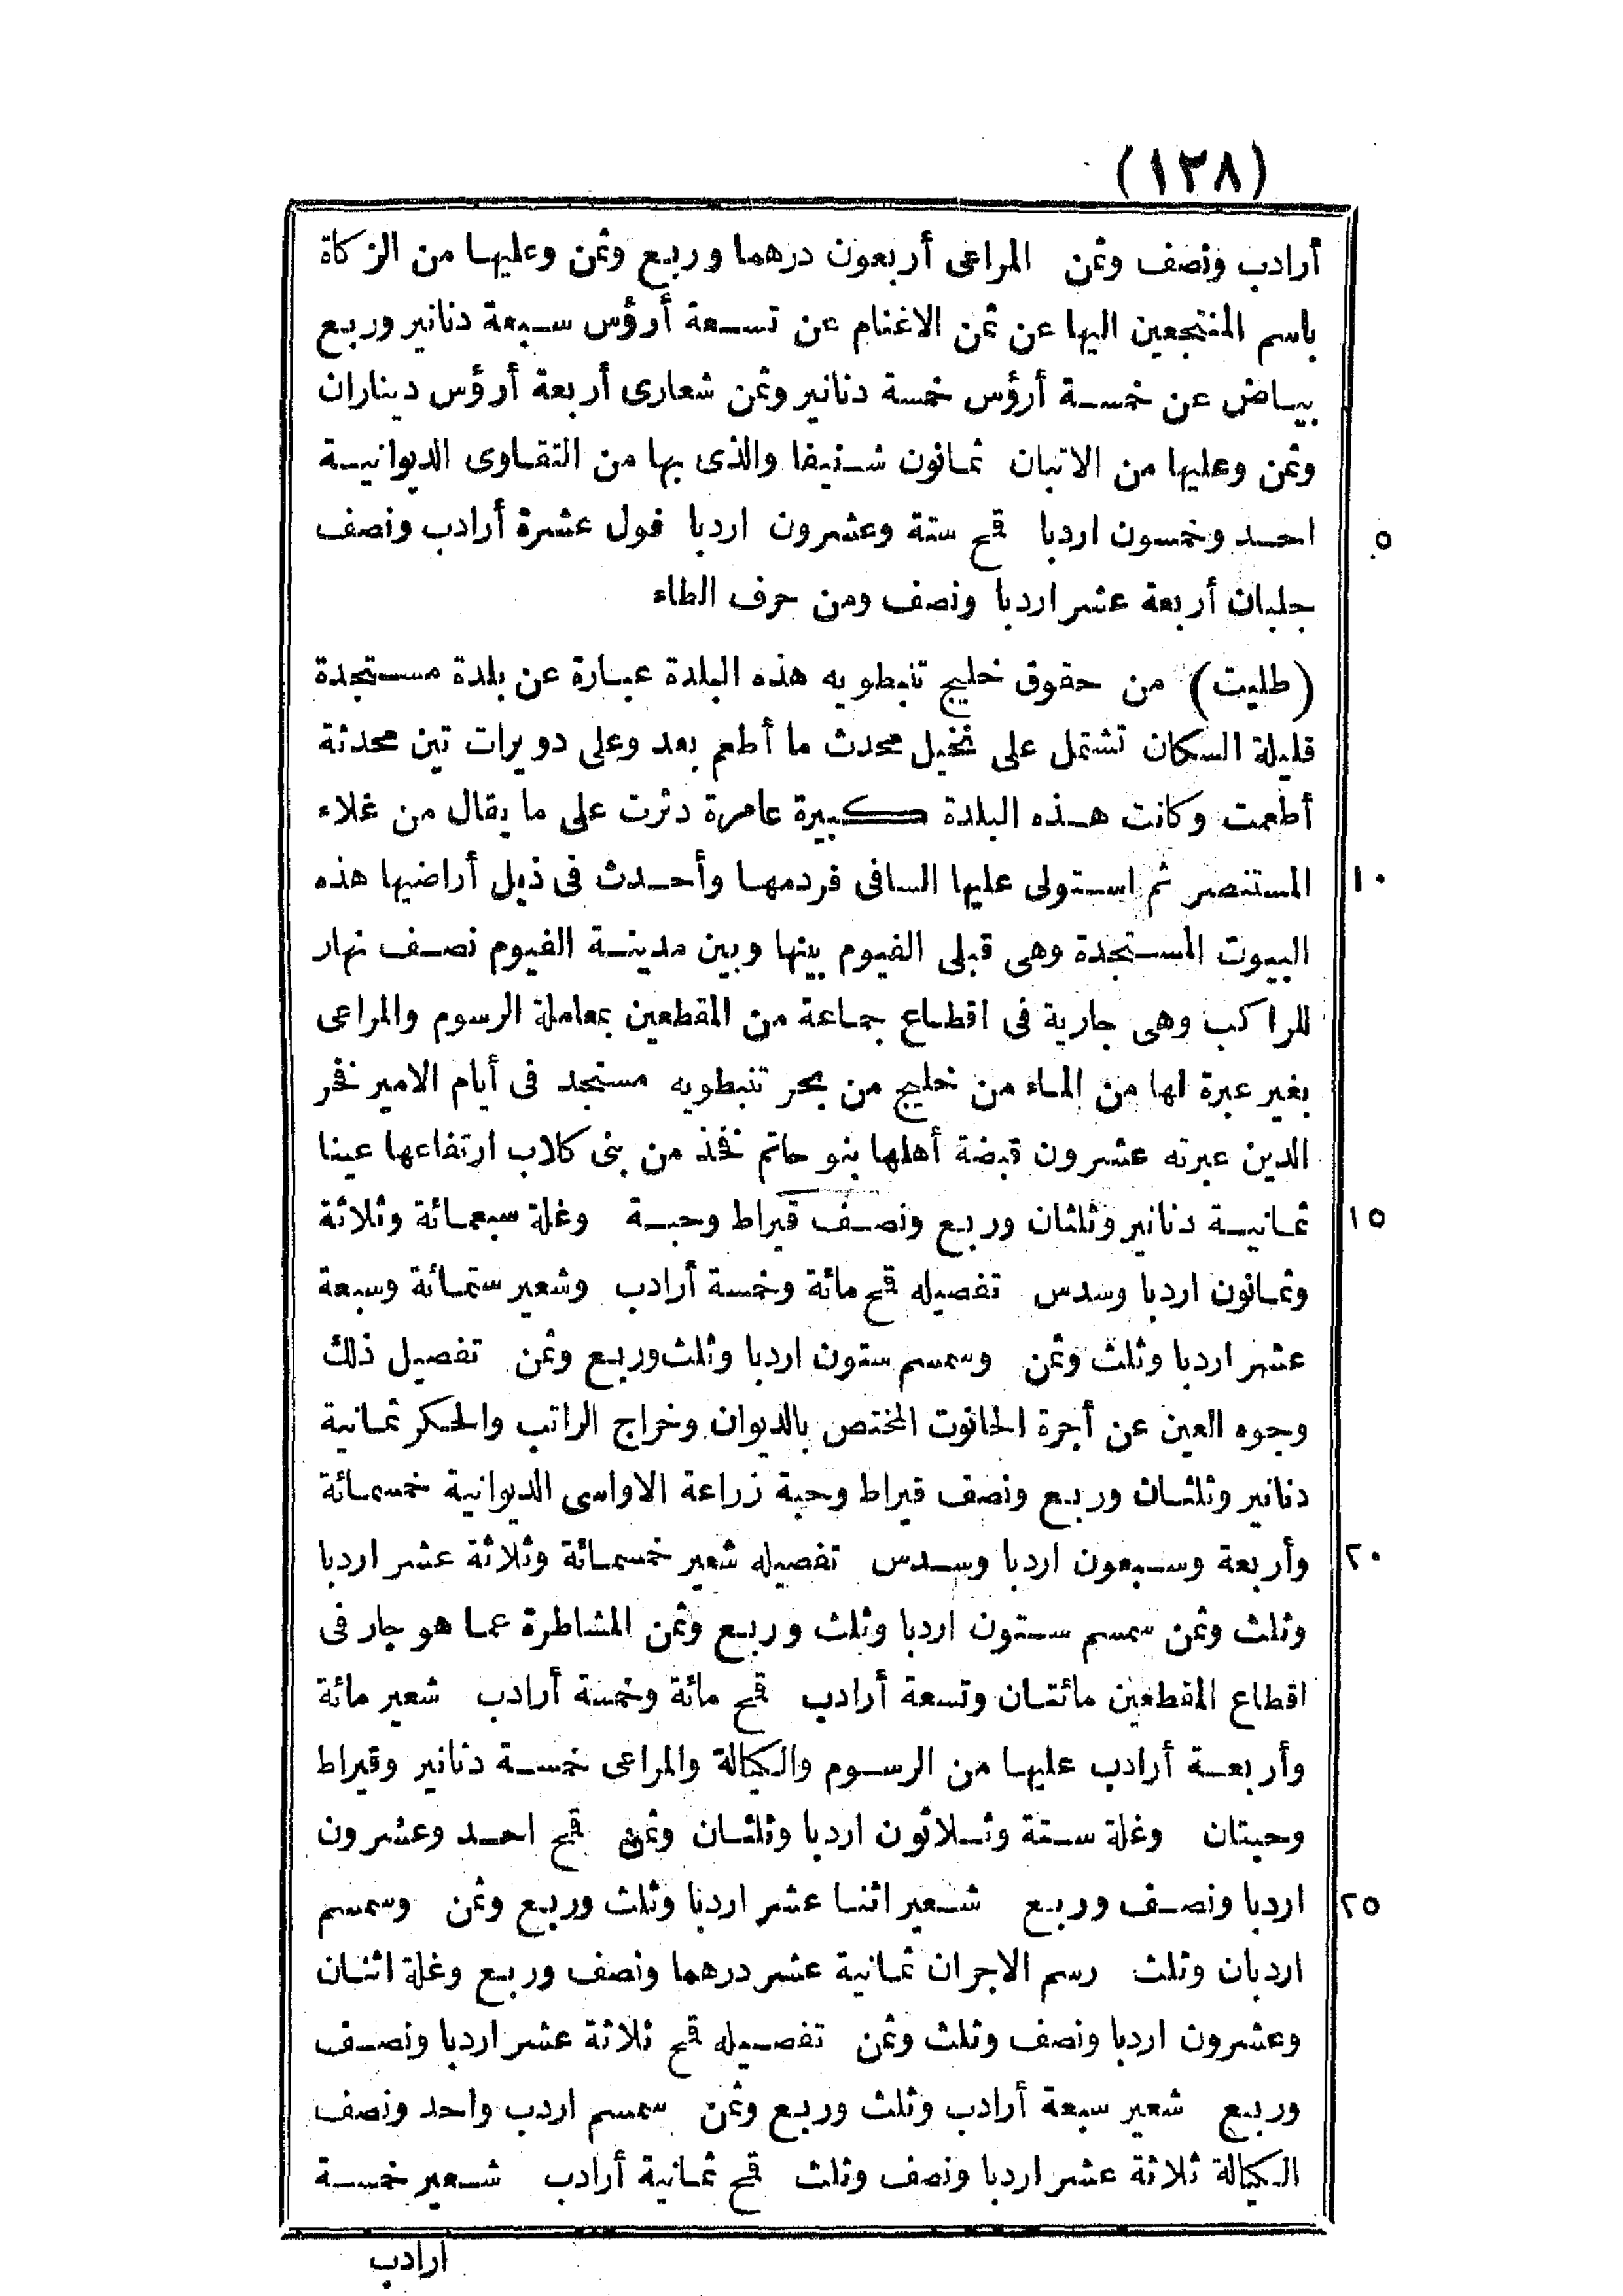 (١٣٨)
أرادب ونصف وثمن المراعى أربعون درهما وربع وثمن وعليها من الزكاة
باسم المنتجعين اليها عن ثمن الاغنام عن تسعة أرؤس سبعة دنانير وربع
بياض عن خمسة أرؤس خمسة دنانير وثمن شعارى أربعة أرؤس ديناران
وثمن وعليها من الاتبان ثمانون شنيفا والذى بها من التقاوى الديوانية
احد وخمسون اردبا قمح ستة وعشرون اردبا فول عشرة أرادب ونصف ٥
جلبان أربعة عشر اردبا ونصف ومن حرف الطاء
(طليت) من حقوق خليج تنبطويه هذه البلدة عبارة عن بلدة مستجدة
قليلة السكان تشتمل على نخيل محدث ما أطعم بعد وعلى دويرات تين محدثة
أطعمت وكانت هذه البلدة كبيرة عامرة دثرت على ما يقال من غلاء
المستنصر ثم استولى عليها السافى فردمها وأحدث فى ذيل أراضيها هذه ١٠
البيوت المستجدة وهى قبلى الفيوم بينها وبين مدينة الفيوم نصف نهار
للراكب وهى جارية فى اقطاع جماعة من المقطعين بمعاملة الرسوم والمراعى
بغير عبرة لها من الماء من خليج من بحر تنبطويه مستجد فى أيام الامير فخر
الدين عبرته عشرون قبضة أهلها بنو حاتم فخذ من بنى كلاب ارتفاعها عينا
ثمانية دنانير وثلثان وربع ونصف قيراط وحبة وغلة سبعمائة وثلاثة ١٥
وثمانون اردبا وسدس تفصيله قمح مائة وخمسة أرادب وشعير ستمائة وسبعة
عشر اردبا وثلث وثمن وسمسم ستون اردبا وثلث وربع وثمن تفصيل ذلك
وجوه العين عن أجرة الحانوت المختص بالديوان وخراج الراتب والحكر ثمانية
دنانير وثلثان وربع ونصف قيراط وحبة زراعة الاواسى الديوانية خمسمائة
وأربعة وسبعون اردبا وسدس تفصيله شعير خمسمائة وثلاثة عشر اردبا ٢٠
وثلث وثمن سمسم ستون اردبا وثلث وربع وثمن المشاطرة عما هو جار فى
اقطاع المقطعين مائتان وتسعة أرادب قمح مائة وخمسة أرادب شعير مائة
وأربعة أرادب عليها من الرسوم والكيالة والمراعى خمسة دنانير وقيراط
وحبتان وغلة ستة وثلاثون اردبا وثلثان وثمن قمح احد وعشرون
اردبا ونصف وربع شعير اثنا عشر اردبا وثلث وربع وثمن وسمسم ٢٥
اردبان وثلث رسم الاجران ثمانية عشر درهما ونصف وربع وغلة اثنان
وعشرون اردبا ونصف وثلث وثمن تفصيله قمح ثلاثة عشر اردبا ونصف
وربع شعير سبعة أرادب وثلث وربع وثمن سمسم اردب واحد ونصف
الكيالة ثلاثة عشر اردبا ونصف وثلث قمح ثمانية أرادب شعير خمسة
ارادب